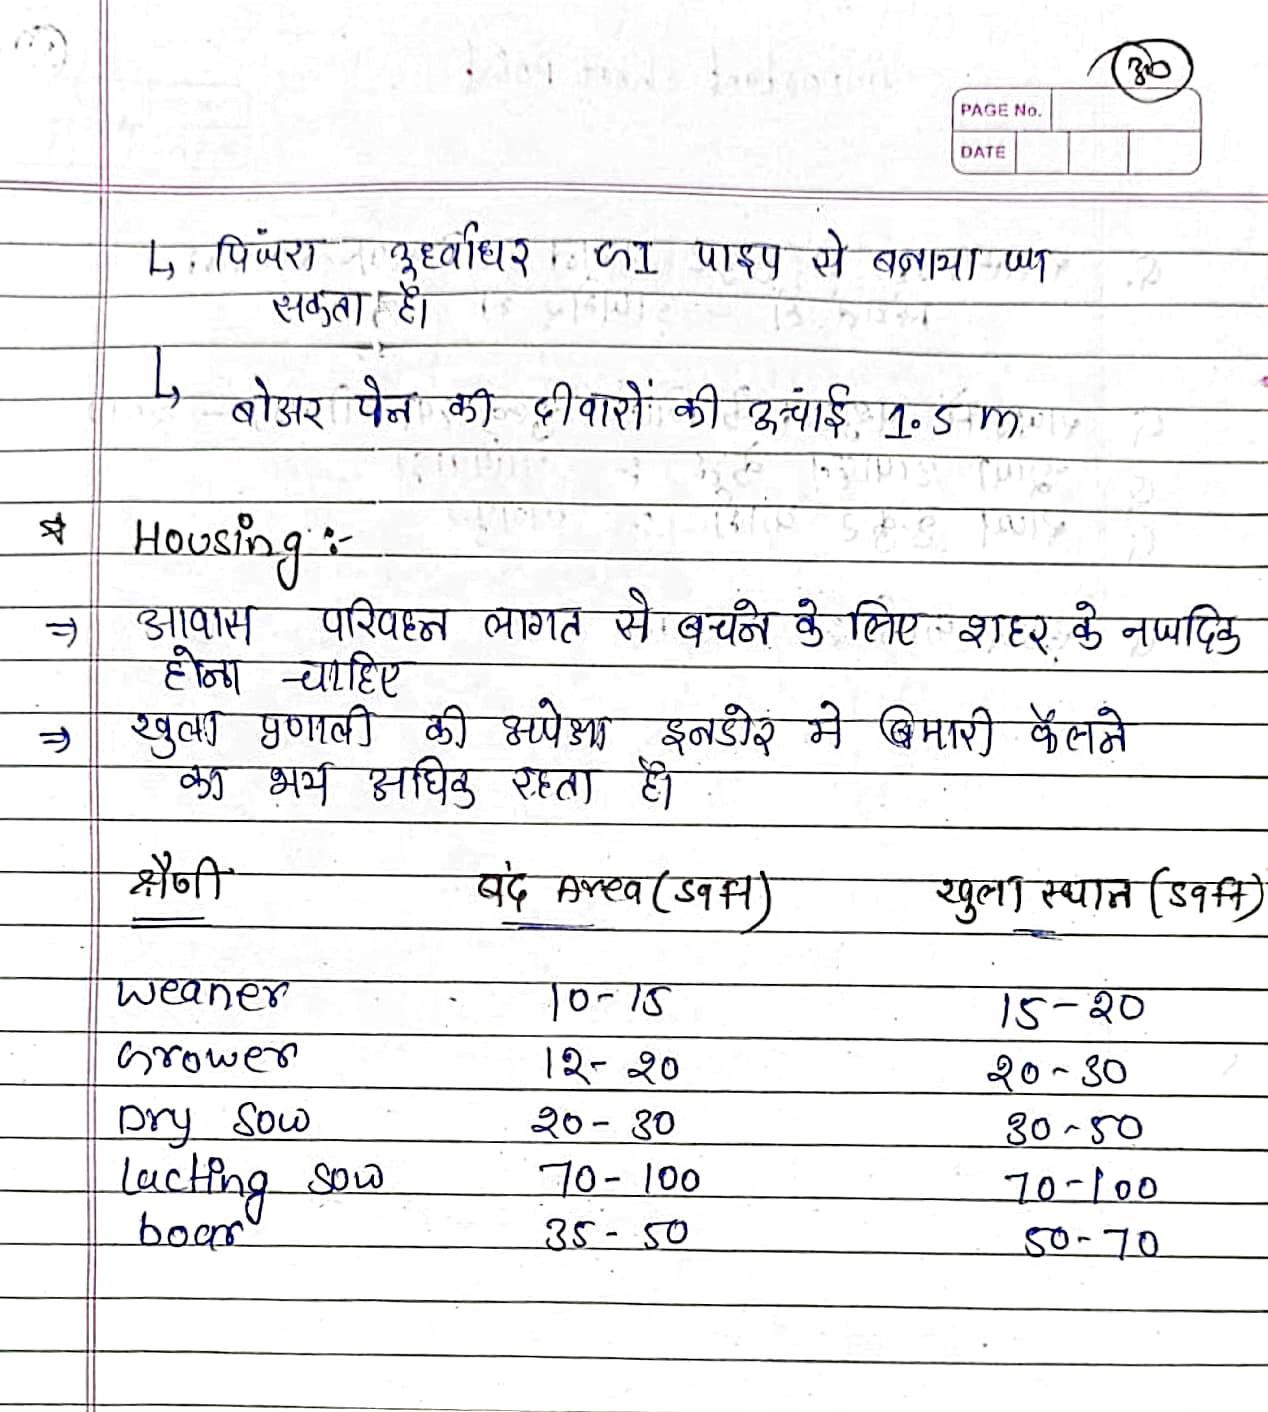 30
PAGE No.
DATE
↳ पिंजरा उर्ध्वाधर का पाइप से बनाया जा
सकता है।
↳ बोअर पेन की दीवारों की ऊचांई 1.5 m.
* Housing :-
⇒ आवास परिवहन लागत से बचने के लिए शहर के नजदिक
होना चाहिए
⇒ खुला प्रणाली की अपेक्षा इनडोर मे बिमारी फैलने
का भय अधिक रहता है।
श्रैणी बंद Area (sqft) खुला स्थान (sqft)
Weaner 10-15 15-20
Grower 12-20 20-30
Dry Sow 20-30 30-50
Lacting sow 70-100 70-100
boar 35-50 50-70